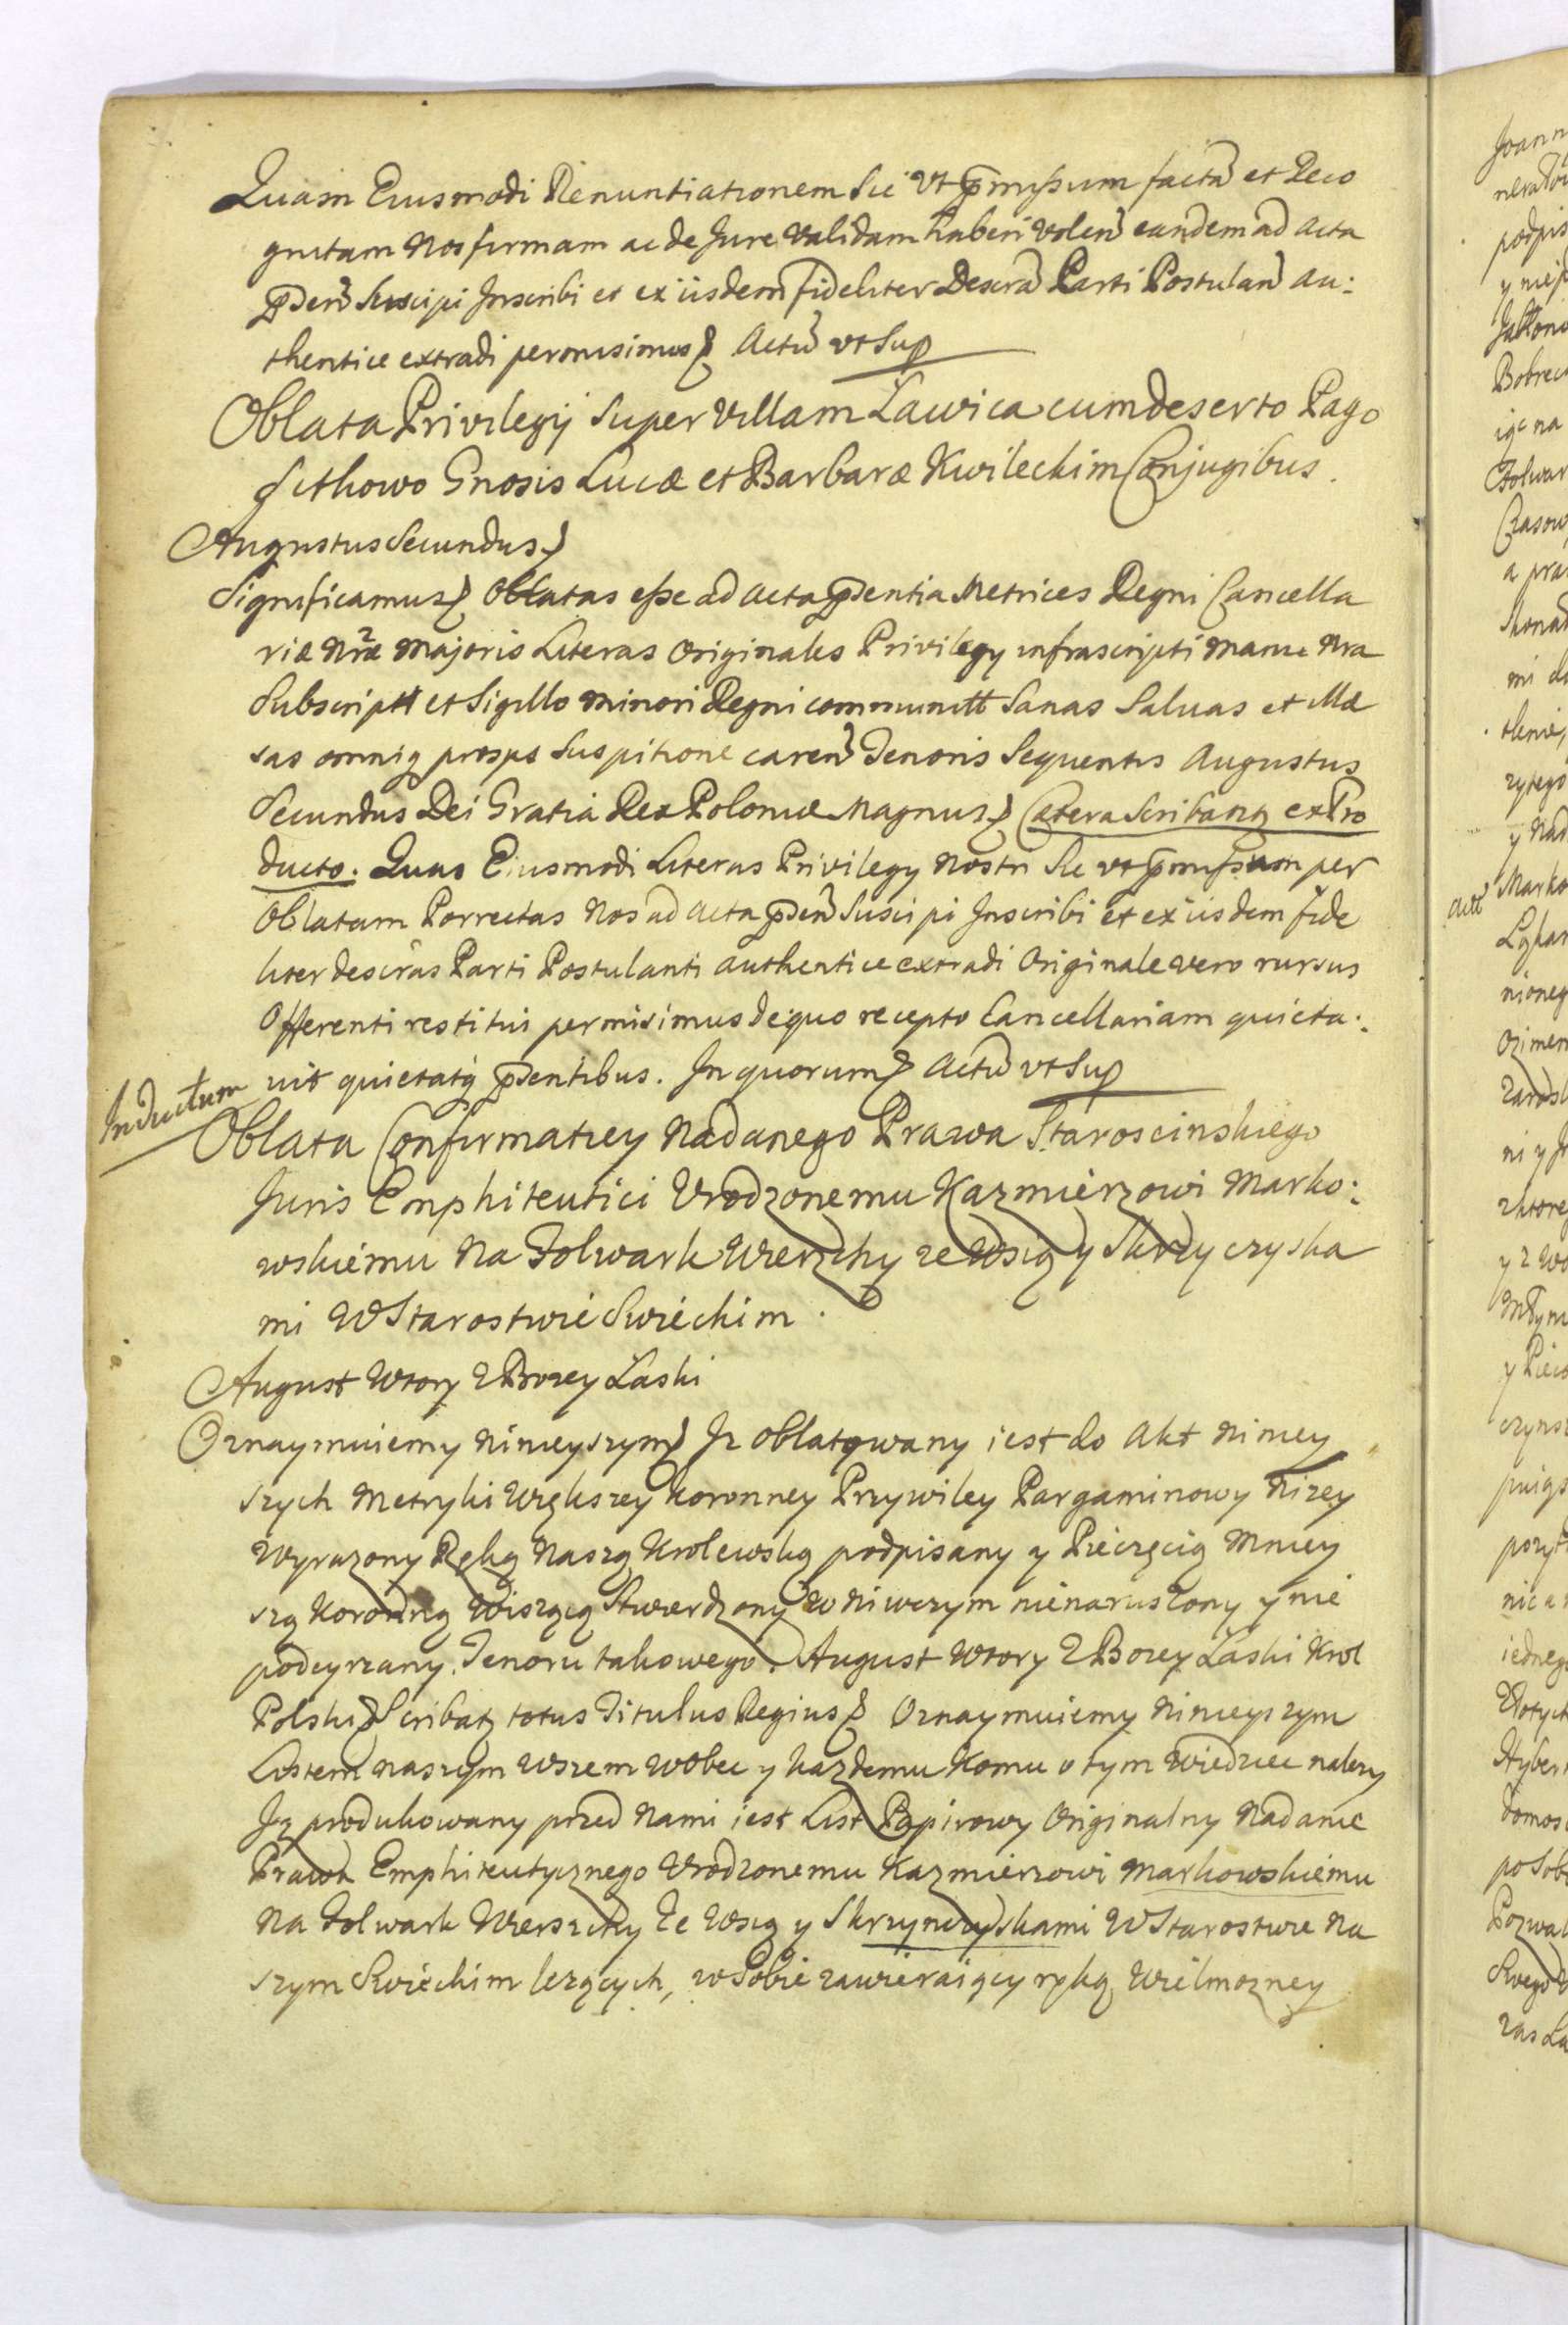 Quam Eiusmodi Renuntiationem Sic Vt p̄missum factã et Reco
gnitam Nos firmam ac de Jure Validam haberi Volen̄ eandem ad Acta
p̄sen̄ Suscipi Inscribi et ex iisdem fideliter Descrã Parti Postulan̄ au:
thentice extradi permisimus Actũ vt Sup
Oblata Privilegij Super Villam Ławica cum deserto Pago
Sithowo Gnosis Lucæ et Barbaræ Kwileckim Conjugibus.
Augustus Secundus
Significamus Oblatas esse ad Acta p̄sentia Metrices Regni Cancella
riæ Nræ Majoris Literas Originales Privilegy infrascripti Manu Nra
Subscriptt et Sigillo Minori Regni communitt Sanas Saluas et illæ
sas omniq prosps Suspitione caren̄ Tenoris Sequentis Augustus
Secundus Dei Gratia Rex Poloniæ Magnus Cætera Scribantz ex Pro
ducto. Quas Eiusmodi Literas Privilegy Nostri Sic vt p̄missum per
Oblatam Porrectas Nos ad Acta p̄sen̄ Suscipi Inscribi et ex iisdem fide
liter descras Parti Postulanti authentice extradi Originale vero rursus
Offerenti restitui permisimus de quo recepto Cancellariam quieta:
Inductum
uit quietatq p̄sentibus. In quorum Actũ vt Sup
Oblata Confirmatiey Nadanego Prawa Staroscinskiego
Juris Emphiteutici Vrodzonemu Kazmierzowi Marko:
wskiemu Na Folwark Wierzchy ze Wsią y Skrzyczyska
mi W Starostwie Swieckim.
August Wtory Z Bozey Łaski
Oznaymuiemy Ninieyszym Iz oblatowany iest do Akt Niniey
szych Metryki Większey Koronney Przywiley Pargaminowy Nizey
Wyrazony Ręką Naszą Krolewską podpisany y Pieczęcią Mniey
szą Koronną Wiszącą Stwierdzony w Niwczym nienaruszony y nie
podeyrzany. Tenoru takowego. August Wtory Z Bozey Łaski Krol
Polski Scribatz totus Titulus Regius Oznaymuiemy Ninieyszym
Listem naszym wszem wobec y kazdemu Komu o tym Wiedziec nalezy
Iz produkowany przed Nami iest List Papirowy Originalny Nadanie
Prawa Emphiteutycznego Vrodzonemu Kazmierzowi Markowskiemu
Na Folwark Wierszchy Ze Wsią y Skrzynczyskami W Starostwie Na
szym Swieckim lezących, w Sobie zawieraiący ręką Wielmozney